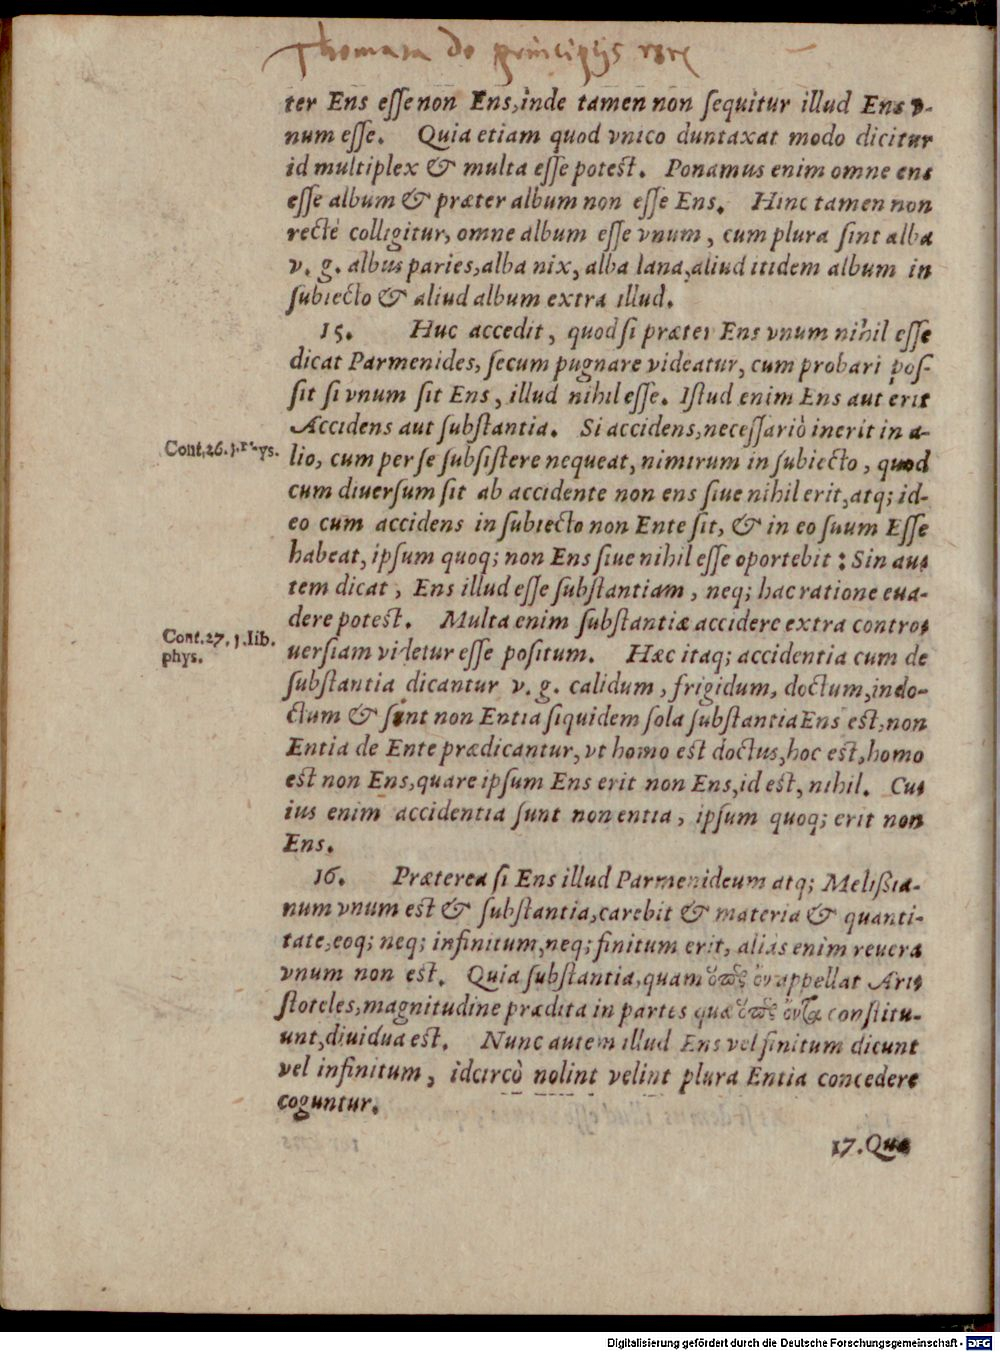 Thomasa de principijs rere
ter Ens eſſe non Ens, inde tamen non ſequitur illud Ens v-
num eſſe. Quia etiam quod vnico duntaxat modo dicitur
id multiplex & multa eſſe poteſt. Ponamus enim omne ens
eſſe album & præter album non eſſe Ens. Hinc tamen non
rectè colligitur, omne album eſſe vnum, cum plura ſint alba
v. g. albus paries, alba nix, alba lana, aliud itidem album in
ſubiecto & aliud album extra illud.
15. Huc accedit, quod ſi præter Ens vnum nihil eſſe
dicat Parmenides, ſecum pugnare videatur, cum probari poſ-
ſit ſi vnum ſit Ens, illud nihil eſſe. Iſtud enim Ens aut erit
Accidens aut ſubſtantia. Si accidens, neceſſariò inerit in a-
Cont. 26. 1. phys.
lio, cum per ſe ſubſiſtere nequeat, nimirum in ſubiecto, quod
cum diuerſum ſit ab accidente non ens ſiue nihil erit, atq; id-
eo cum accidens in ſubiecto non Ente ſit, & in eo ſuum Eſſe
habeat, ipſum quoq; non Ens ſiue nihil eſſe oportebit: Sin au-
tem dicat, Ens illud eſſe ſubſtantiam, neq; hac ratione eua-
dere poteſt. Multa enim ſubſtantiæ accidere extra contro-
Cont. 27. 1. lib.
phys.
uerſiam videtur eſſe poſitum. Hæc itaq; accidentia cum de
ſubſtantia dicantur v. g. calidum, frigidum, doctum, indo-
ctum & ſunt non Entia ſiquidem ſola ſubſtantia Ens eſt, non
Entia de Ente prædicantur, vt homo eſt doctus, hoc eſt, homo
eſt non Ens, quare ipſum Ens erit non Ens, id eſt, nihil. Cu-
ius enim accidentia ſunt non entia, ipſum quoq; erit non
Ens.
16. Præterea ſi Ens illud Parmenideum atq; Melißia-
num vnum eſt & ſubſtantia, carebit & materia & quanti-
tate, eoq; neq; infinitum, neq; finitum erit, alias enim reuera
vnum non eſt. Quia ſubſtantia, quam ὅπερ ὂν appellat Ari-
ſtoteles, magnitudine prædita in partes quæ ὅπερ ὄντα conſtitu-
unt, diuidua eſt. Nunc autem illud Ens vel finitum dicunt
vel infinitum, idcircò nolint velint plura Entia concedere
coguntur.
17. Quæ
Digitalisierung gefördert durch die Deutsche Forschungsgemeinschaft - DFG